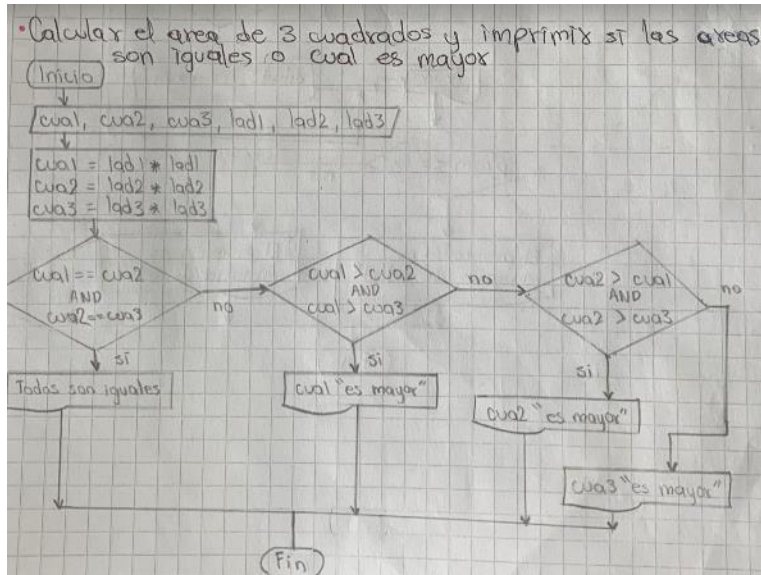 • Calcular el area de 3 cuadrados y imprimir si las areas
son iguales o cual es mayor
Inicio
cua1, cua2, cua3, lad1, lad2, lad3
cua1 = lad1 * lad1
cua2 = lad2 * lad2
cua3 = lad3 * lad3
cua1 == cua2
AND
cua2==cua3
no
si
Todos son iguales
cua1 > cua2
AND
cua1 > cua3
no
si
cua1 "es mayor"
cua2 > cua1
AND
cua2 > cua3
no
si
cua2 "es mayor"
cua3 "es mayor"
Fin